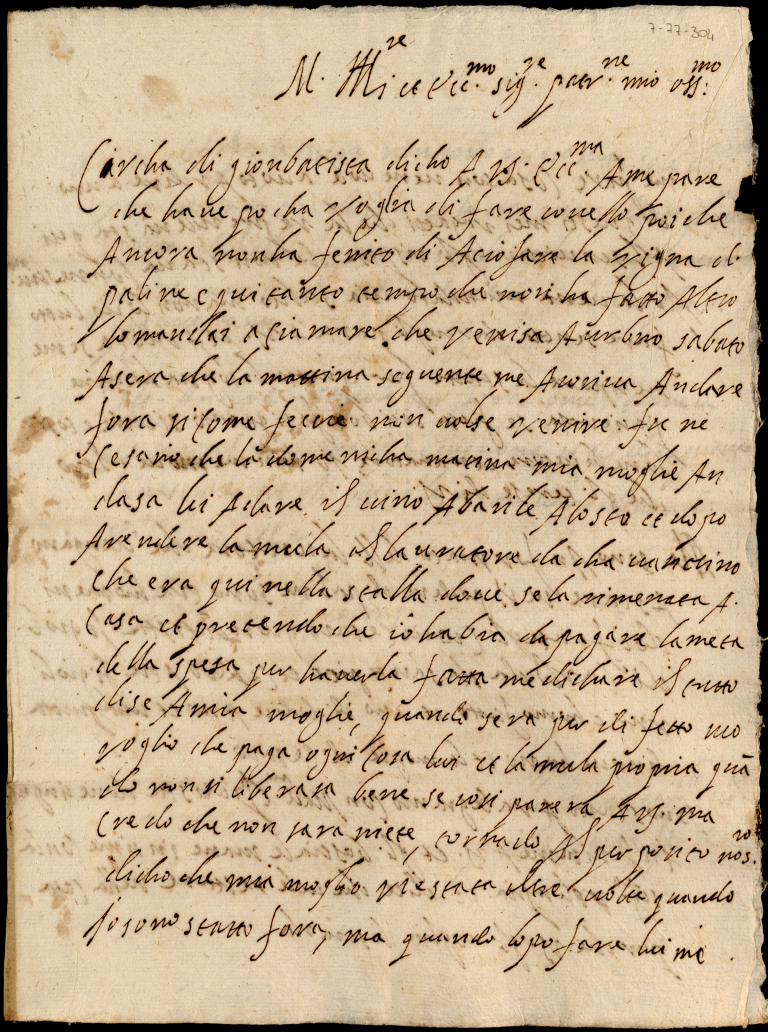 7-77-304
M. Ill.re et ecc.mo sig.re patr.ne mio oss.mo
Circha di gionbatista dicho A V.S. Ecc.ma A me pare
che have pocha voglia di fare covello poi che
Ancora non ha fenito di Aciofare la vigna di
paline e qui tanto tempo che non ha fatto Altro
lo mandai a ciamare che venisa A urbino sabato
A sera che la mattina seguente me Aveniva Andare
fora si come feci e non volse venire fu ne
Cesario che la domenicha matina mia moglie An
dasa lei A dare il vino A barile A l'osto et dopo
A rendere la mula al lavoratore da cha vantino
che era qui nella stalla dove se la rimenata A
Casa et pretendo che io habia da pagare la meta
della spesa per haverla fatta medichare il tutto
dise A mia moglie, quando sera per di fetto suo
voglio che paga ogni cosa lui et la mula propria quā
do non si liberasa bene se cosi parera A V.S. ma
Credo che non sara niete, tornado Al proposito nos.ro
dicho che mia moglie vi e stata altre volte quando
io sono stato fora, ma quando lo po fare lui me